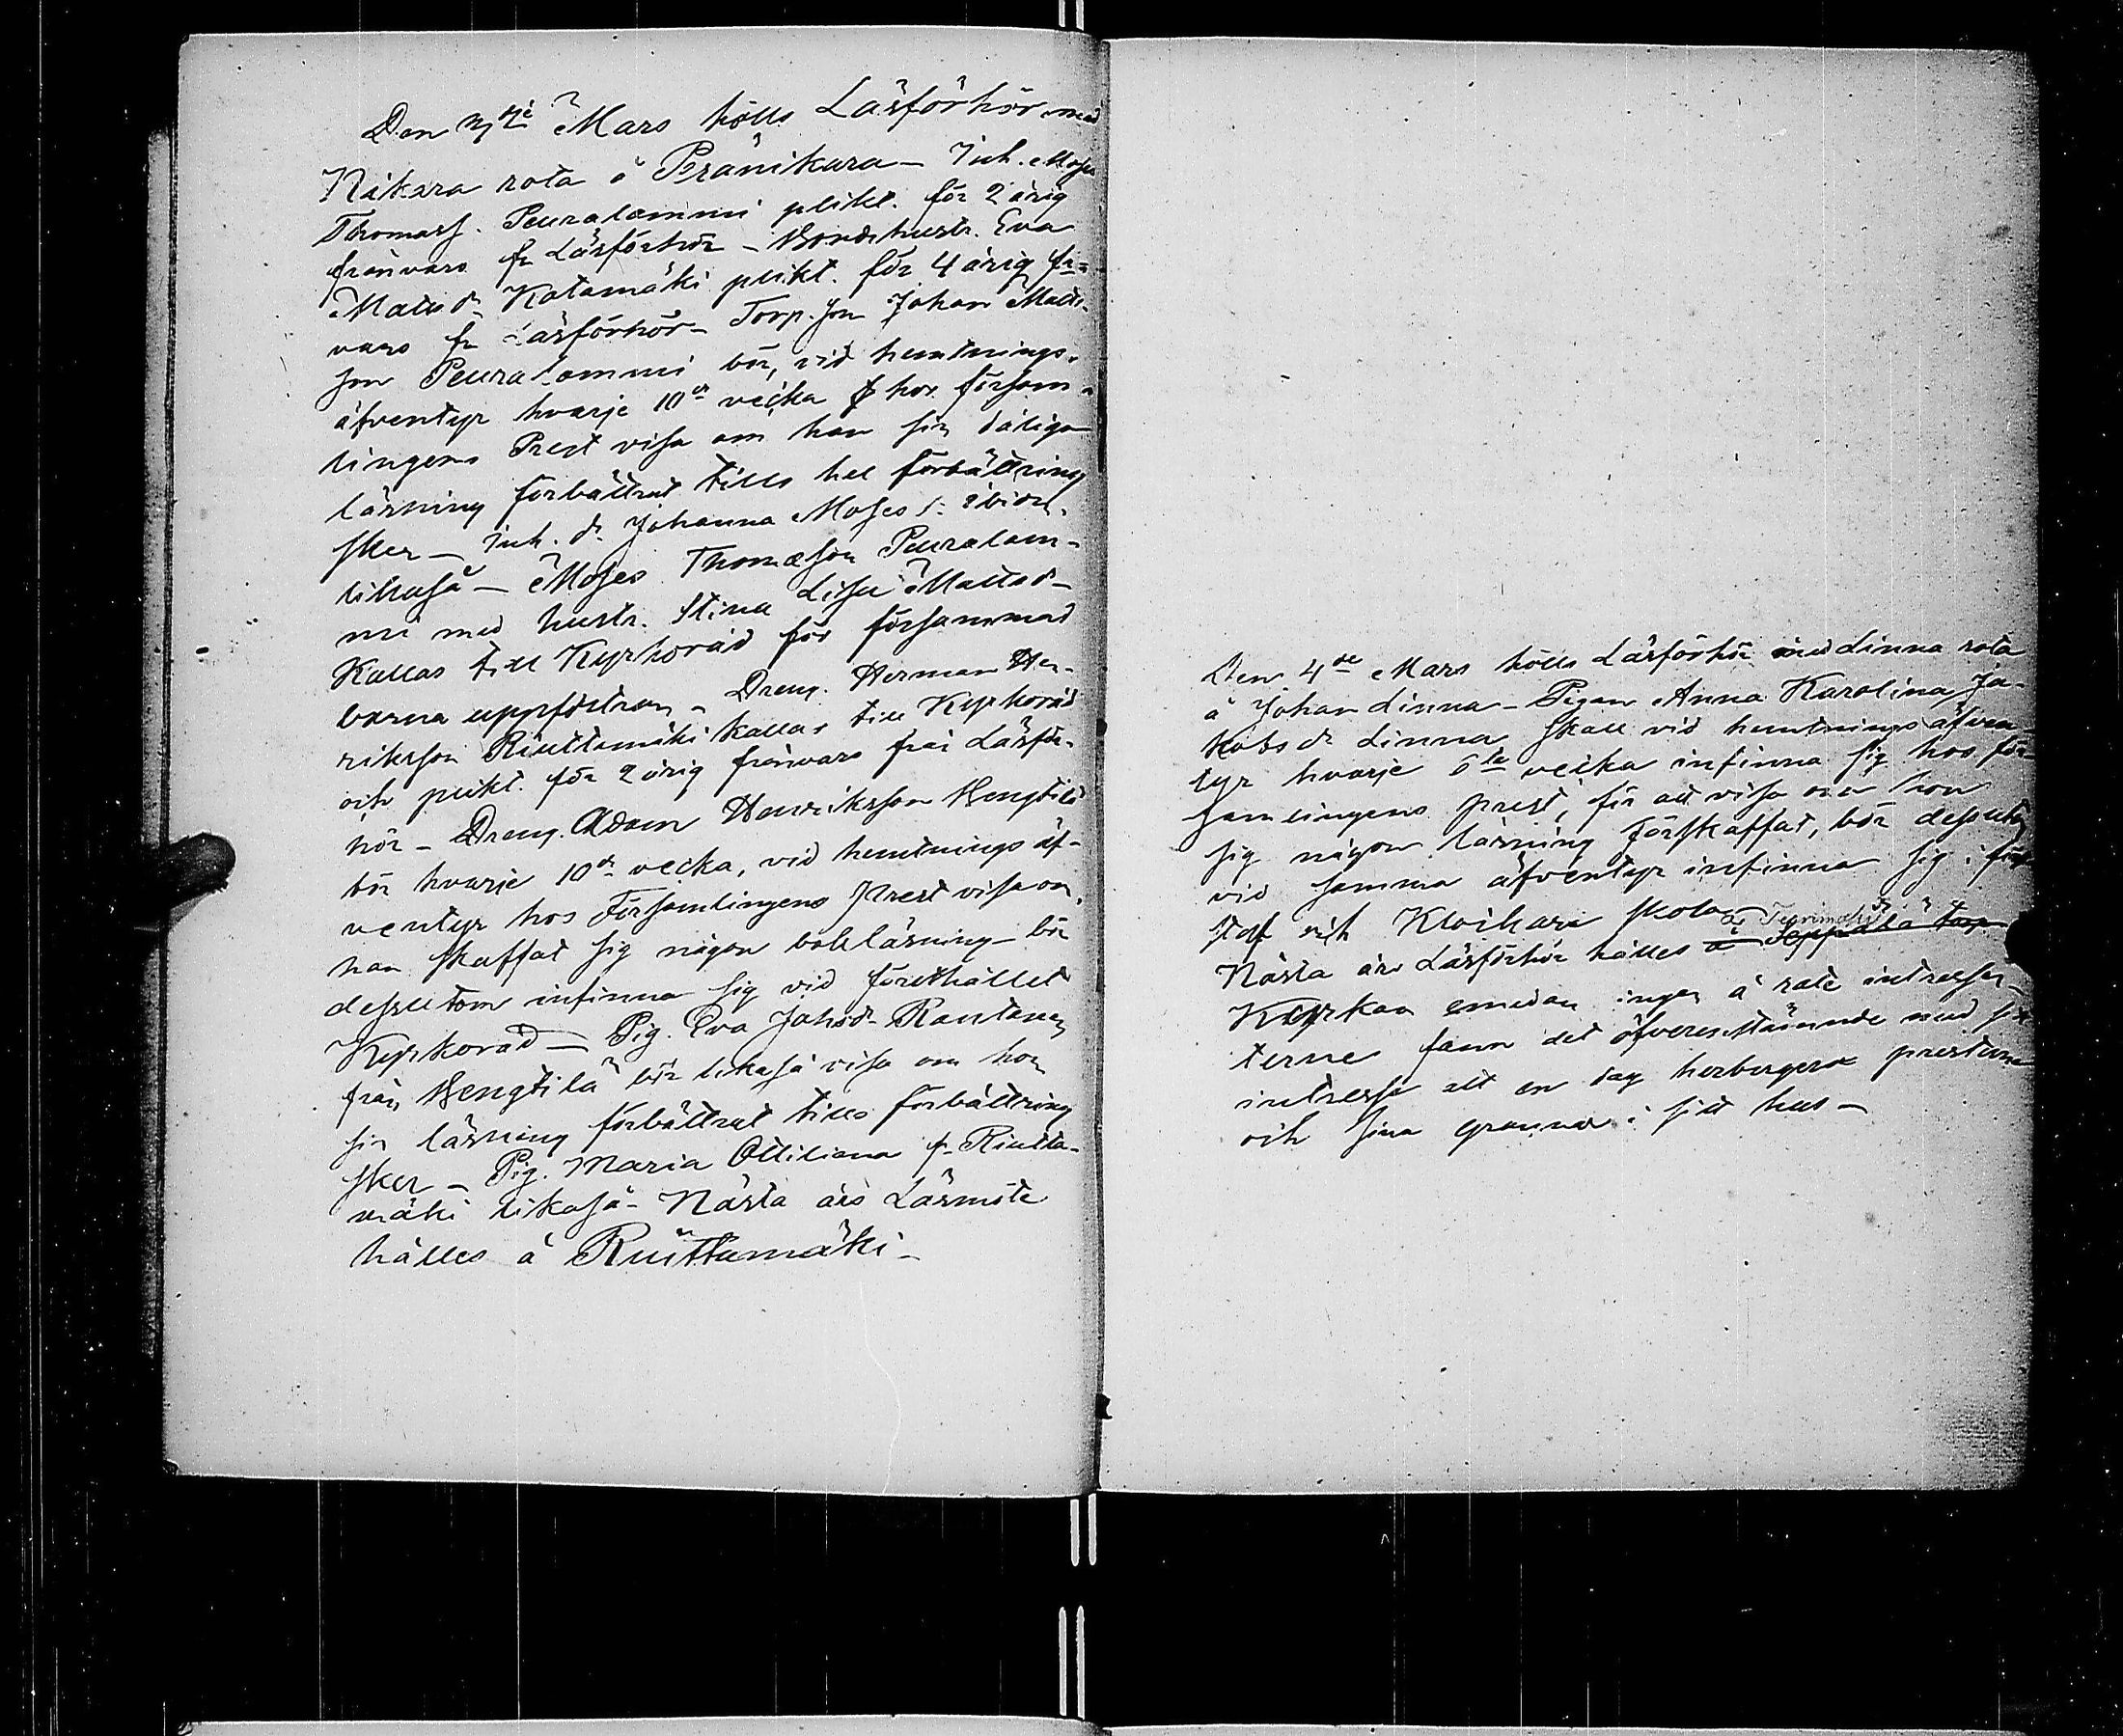 Den 3dje Mars hölls Läsförhör med
Nikara rota å Peränikara – Inh. Moses
Thomass. Peuralammi plikt. för 2 årig
frånvaro fr Läsförhör – Bondehustr. Eva
Matsdr Katamäki plikt. för 4 årig från-
varo fr Läsförhör – Torp. son Johan Matts-
son Peuralammi bör, vid hemtnings-
äfventyr hvarje 10de vecka hos försam-
lingens Prest visa om han sin dåliga
läsning förbättrat tills hel förbättring
sker – Inh. dr Johanna Moses dr ibidm.
likaså – Moses Thomasson Peuralam-
mi med hustr. Stina Lisa Mattsdr
Kallas till Kyrkoråd för försummad
barna uppfostran – Dreng. Herman Hen-
riksson Riuttamäki kallas till Kyrkoråd
och plikt. för 2 årig frånvaro från Läsför-
hör – Dreng. Adam Henriksson Bengtilä
bör hvarje 10de vecka, vid hemtnings äf-
ventyr hos Församlingens Prest visa om
han skaffat sig någon bokläsning – bör
dessutom infinna sig vid förethållet
Kyrkoråd – Pig. Eva Johsdr Rantanen
från Bengtilä bör likaså visa om hon
sin läsning förbättrat tills förbättring
sker – Pig. Maria Ottiliana fr Riutta-
mäki likaså – Nästa års Läsmöte
hålles å Riuttamäki –
Den 4de Mars hölls Läsförhör med Linna rota
å Johan Linna – Pigan Anna Karolina Ja-
kobsdr Linna skall vid hemtnings äfven-
tyr hvarje 6te vecka infinna sig hos för-
samlingens prest, för att visa om hon
sig någon läsning förskaffat, bör dessutom
vid samma äfventyr infinna sig i
och Kloikari skola –
Nästa års Läsförhör hålles å Seppälä torp
Kyrkan emedan ingen å rote intressen-
terne fann det öfverensstämmde med sitt
intresse att en dag herbergera presterna
och sina grannar i sitt hus –